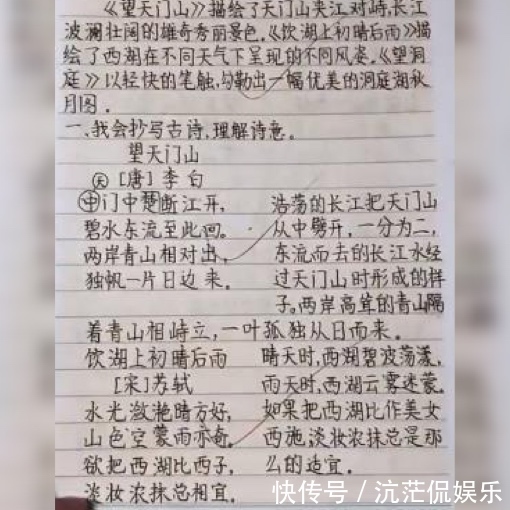 《望天门山》描绘了天门山夹江对峙,长江
波澜壮阔的雄奇秀丽景色.《饮湖上初晴后雨》描
绘了西湖在不同天气下呈现的不同风姿.《望洞
庭》以轻快的笔触,勾勒出一幅优美的洞庭湖秋
月图.
一、我会抄写古诗,理解诗意.
望天门山
天 [唐]李白
中门中楚断江开,
碧水东流至此回。
两岸青山相对出,
独帆一片日边来.
浩荡的长江把天门山
从中劈开,一分为二,
东流而去的长江水经
过天门山时形成的样
子。两岸高耸的青山隔
着青山相峙立,一叶孤独从日而来.
饮湖上初晴后雨
[宋]苏轼
水光潋滟晴方好,
山色空蒙雨亦奇。
欲把西湖比西子,
淡妆浓抹总相宜.
晴天时,西湖碧波荡漾,
雨天时,西湖云雾迷蒙.
如果把西湖比作美女
西施,淡妆浓抹总是那
么的适宜.
快传号 / 沆茫侃娱乐